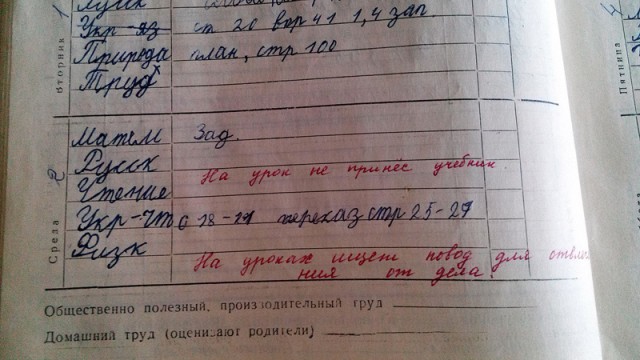 1
Укр-яз ст 20 впр 41 1,4 зап.
Природа план, стр 100
Труд
вторник
Матем Зад.
Русск
На урок не принёс учебник.
Чтение
Укр-Чт с 18-19 пересказ стр 25-27
Физк
На уроках ищет повод для отвле
ния от дела.
Среда
2
Общественно полезный, производительный труд
Домашний труд (оценивают родители)
Пятница
4